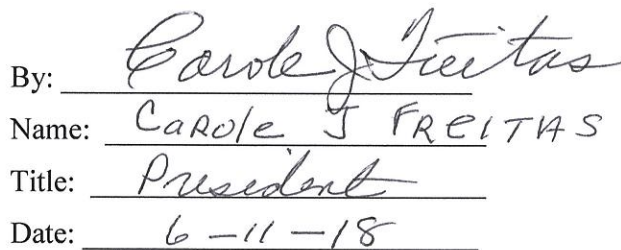 By: Carole J Freitas
Name: Carole J FREITAS
Title: President
Date: 6-11-18